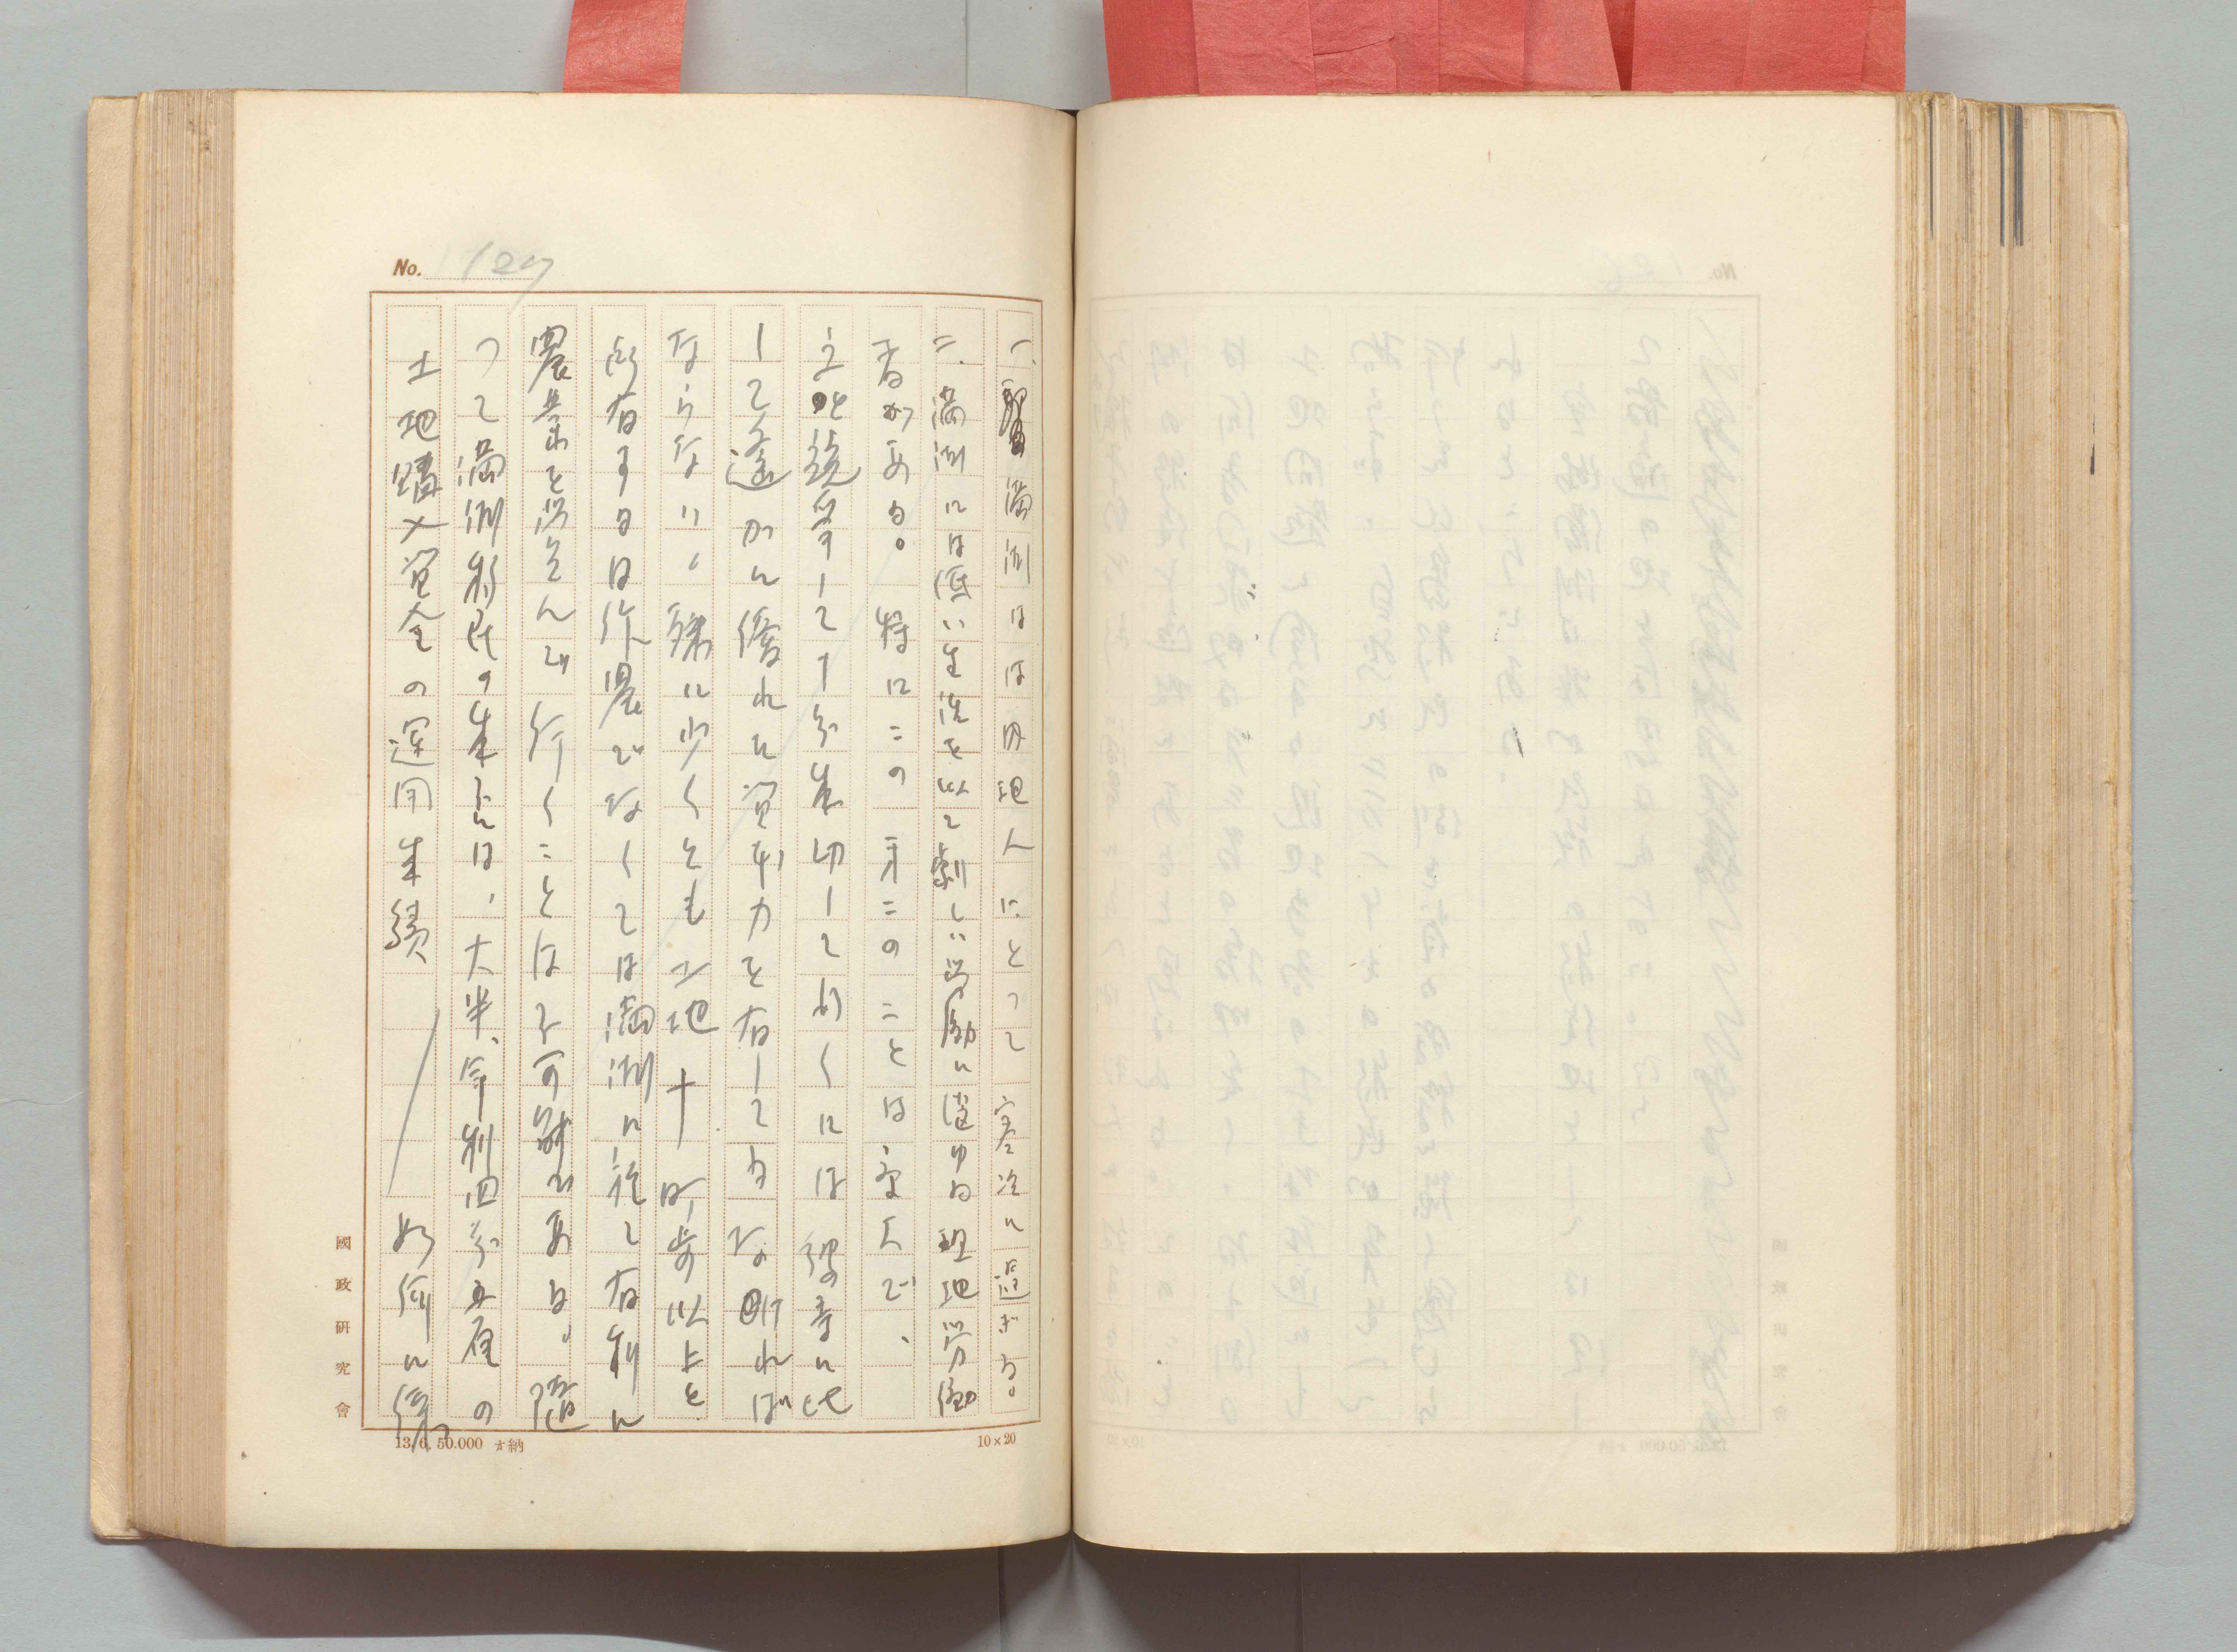 No. 127
一、満洲は内地人にとつて寒冷に過ぎる。
二、満洲には低い生活を以て劇しい労働に従ゆる現地労働
者がある。特にこの第二のことは重大で、
之と競争して十分成功して行くには彼等に比
して遙かに優れた資本力を有してゐなければ
ならない。殊に少くとも土地十町歩以上を
所有する自作農でなくしては満洲に於て有利に
農業を営んで行くことは不可能である。従
つて満洲移民の成否は、大半、年利四分五厘の
土地購入資金の運用成績 如何に係
國政研究會
13. 6. 50.000 納
10×20